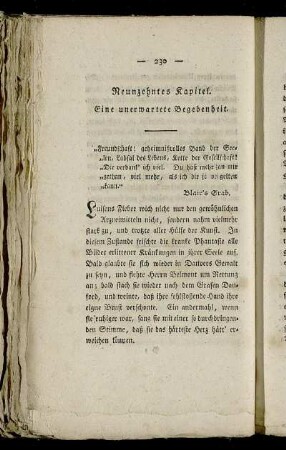 — 230 —
Neunzehntes Kapitel.
Eine unerwartete Begebenheit.
„Freundschaft! geheimnißvolles Band der See-
„len, Labsal des Lebens, Kette der Gesellschaft!
„Dir verdank' ich viel. Du hast mehr für mich
„gethan, viel mehr, als ich dir je vergelten
„kann.“
Blair's Grab.
Luisens Fieber wich nicht nur den gewöhnlichen
Arzneimitteln nicht, sondern nahm vielmehr
stark zu, und trotzte aller Hülfe der Kunst. In
diesem Zustande frischte die kranke Phantasie alle
Bilder erlittener Kränkungen in ihrer Seele auf.
Bald glaubte sie sich wieder in Gewalt
zu seyn, und flehte Herrn Belmont um Rettung
an; bald stach sie wieder nach dem Grafen
und weinte, daß ihre fehlstoßende Hand ihre
eigne Brust verschonte. Ein andermahl, wenn
sie ruhiger war, sang sie mit einer so durchdringen-
den Stimme, daß sie das härteste Herz hätt' er-
weichen können.